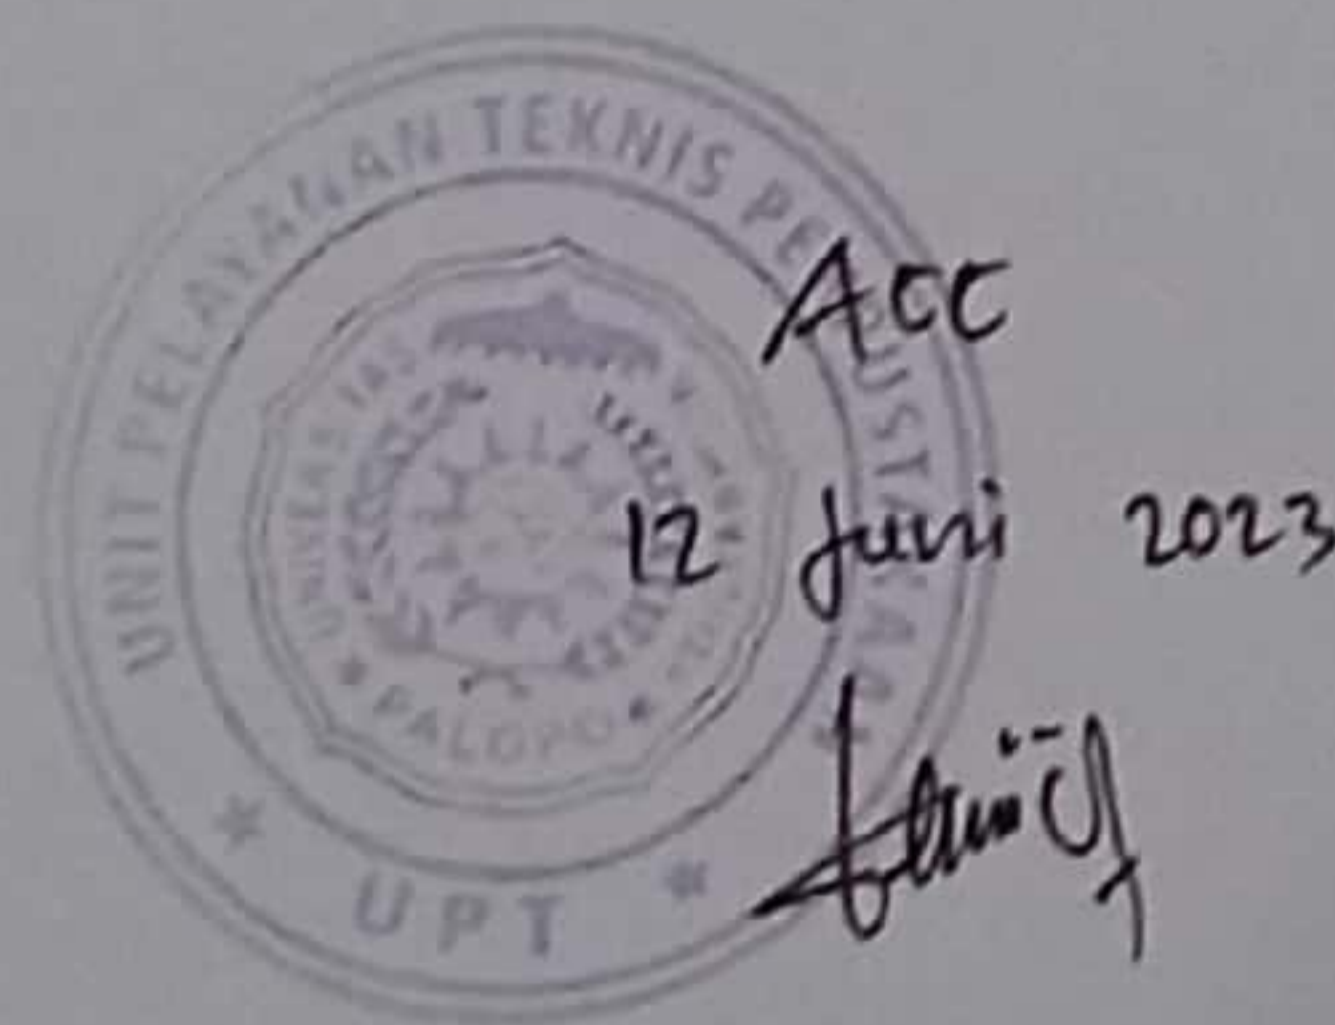 UNIT PELAYANAN TEKNIS PERPUSTAKAAN
UNIVERSITAS
PALOPO
UPT
ACC
12 Juni 2023